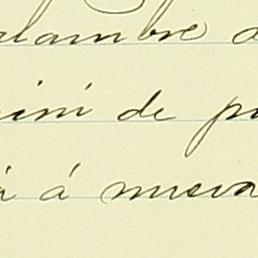 alambre d
ini de p
á nueva